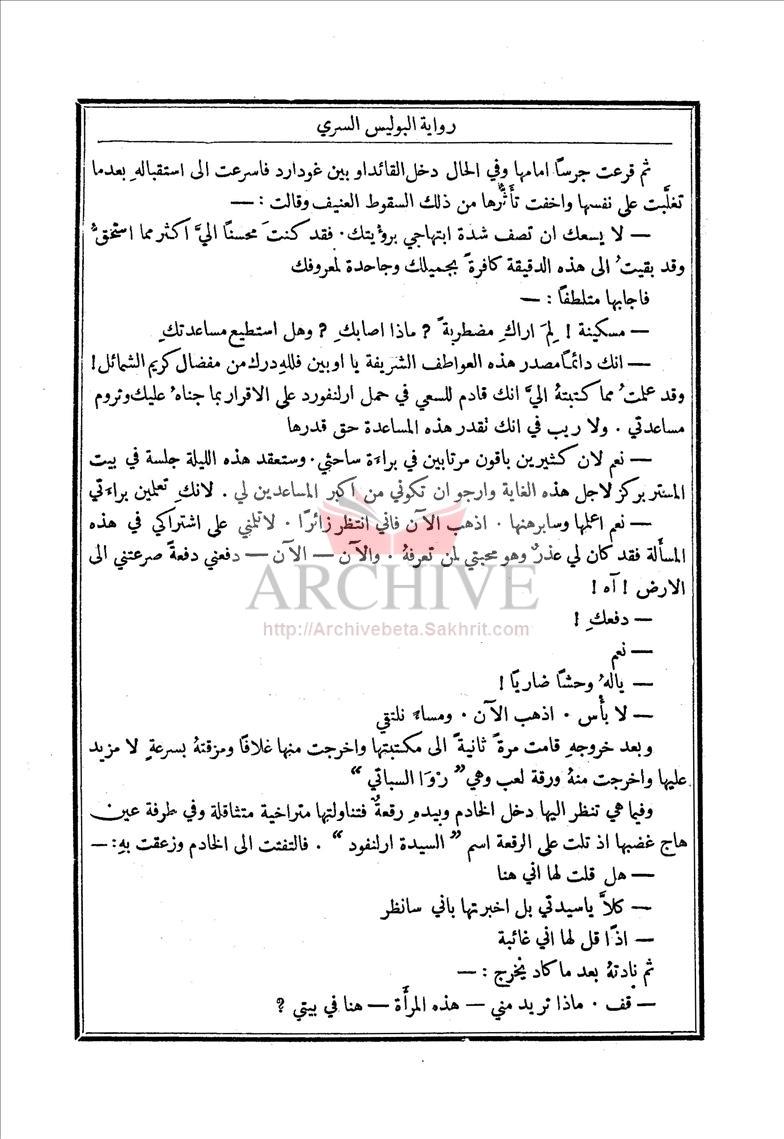 رواية البوليس السري
ثم قرعت جرسًا امامها وفي الحال دخل القائد او بين غودارد فاسرعت الى استقبالهِ بعدما
تغلَّبت على نفسها واخفت تأَثُّرها من ذلك السقوط العنيف وقالت : —
— لا يسعك ان تصف شدة ابتهاجي برؤيتك . فقد كنتَ محسنًا اليَّ اكثر مما استحقُّ
وقد بقيتُ الى هذه الدقيقة كافرةً بجميلك وجاحدة لمعروفك
فاجابها متلطفًا : —
— مسكينة ! لِمَ اراكِ مضطربةً ? ماذا اصابكِ ? وهل استطيع مساعدتكِ
— انك دائمًا مصدر هذه العواطف الشريفة يا اوبين فللهِ درك من مفضال كريم الشمائل !
وقد علمتُ مما كتبتهُ اليَّ انك قادم للسعي في حمل ارلنفورد على الاقرار بما جناهُ عليك وتروم
مساعدتي . ولا ريب في انك تقدر هذه المساعدة حق قدرها
— نعم لان كثيرين باقون مرتابين في براءة ساحتي . وستعقد هذه الليلة جلسة في بيت
المستر بركز لاجل هذه الغاية وارجو ان تكوني من اكبر المساعدين لي . لانكِ تعلمين براءتي
— نعم اعلمها وسابرهنها . اذهب الآن فاني انتظر زائرًا . لا تلمني على اشتراكي في هذه
المسأَلة فقد كان لي عذرٌ وهو محبتي لمن تعرفهُ . والآن — الآن — دفعني دفعةً صرعتني الى
الارض ! آه !
ARCHIVE
http://Archivebeta.Sakhrit.com
— دفعكِ !
— نعم
— يالهُ وحشًا ضاريًا !
— لا بأْس . اذهب الآن . ومساءً نلتقي
وبعد خروجهِ قامت مرةً ثانيةً الى مكتبتها واخرجت منها غلافًا ومزقتهُ بسرعةٍ لا مزيد
عليها واخرجت منهُ ورقة لعب وهي " رْوَا السباتي "
وفيما هي تنظر اليها دخل الخادم وبيدهِ رقعةٌ فتناولتها متراخية متثاقلة وفي طرفة عين
هاج غضبها اذ تلت على الرقعة اسم " السيدة ارلنفود " . فالتفتت الى الخادم وزعقت بهِ : —
— هل قلت لها اني هنا
— كلاَّ ياسيدتي بل اخبرتها باني سانظر
— اذًا قل لها اني غائبة
ثم نادتهُ بعد ما كاد يخرج : —
— قف . ماذا تريد مني — هذه المرأَة — هنا في بيتي ?